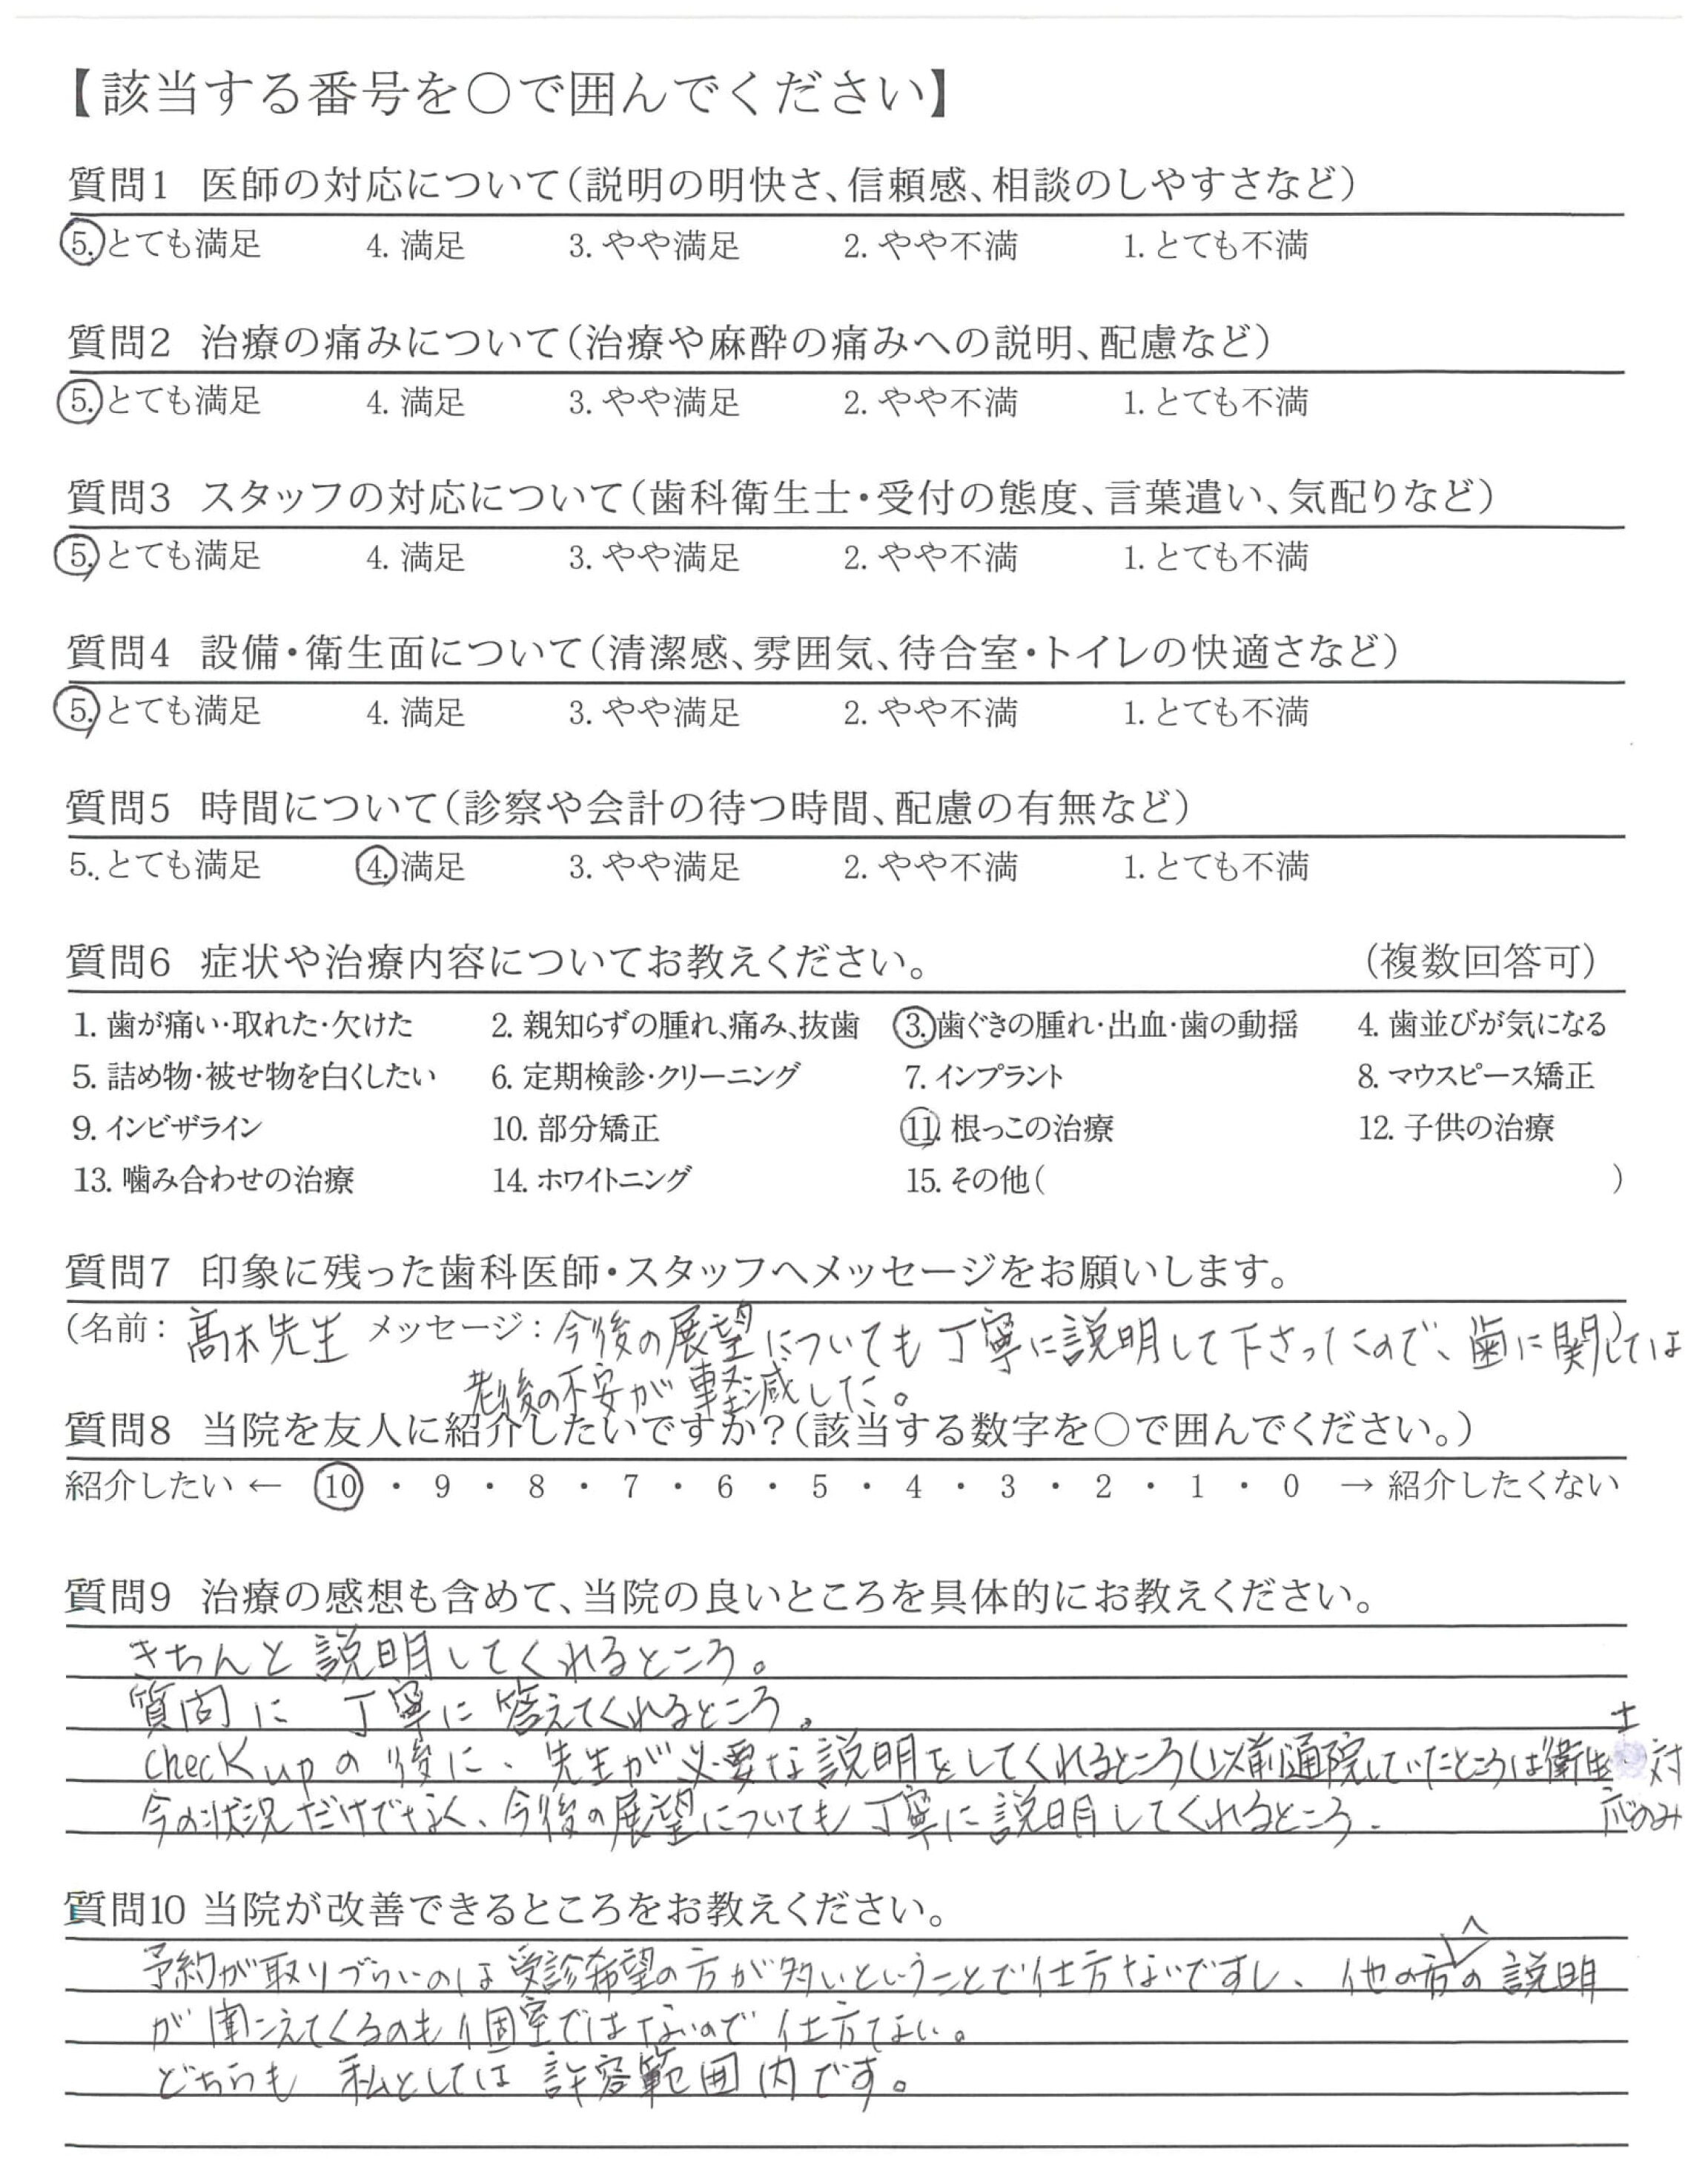 【該当する番号を○で囲んでください】
質問1 医師の対応について(説明の明快さ、信頼感、相談のしやすさなど)
5. とても満足 4. 満足 3. やや満足 2. やや不満 1. とても不満
質問2 治療の痛みについて(治療や麻酔の痛みへの説明、配慮など)
5. とても満足 4. 満足 3. やや満足 2. やや不満 1. とても不満
質問3 スタッフの対応について(歯科衛生士・受付の態度、言葉遣い、気配りなど)
5. とても満足 4. 満足 3. やや満足 2. やや不満 1. とても不満
質問4 設備・衛生面について(清潔感、雰囲気、待合室・トイレの快適さなど)
5. とても満足 4. 満足 3. やや満足 2. やや不満 1. とても不満
質問5 時間について(診察や会計の待つ時間、配慮の有無など)
5. とても満足 4. 満足 3. やや満足 2. やや不満 1. とても不満
質問6 症状や治療内容についてお教えください。 (複数回答可)
1. 歯が痛い・取れた・欠けた 2. 親知らずの腫れ、痛み、抜歯 3. 歯ぐきの腫れ・出血・歯の動揺 4. 歯並びが気になる
5. 詰め物・被せ物を白くしたい 6. 定期検診・クリーニング 7. インプラント 8. マウスピース矯正
9. インビザライン 10. 部分矯正 11. 根っこの治療 12. 子供の治療
13. 噛み合わせの治療 14. ホワイトニング 15. その他( )
質問7 印象に残った歯科医師・スタッフへメッセージをお願いします。
(名前: 髙木先生 メッセージ: 今後の展望についても丁寧に説明して下さったので、歯に関しては)
老後の不安が軽減した。
質問8 当院を友人に紹介したいですか?(該当する数字を○で囲んでください。)
紹介したい ← 10 ・ 9 ・ 8 ・ 7 ・ 6 ・ 5 ・ 4 ・ 3 ・ 2 ・ 1 ・ 0 → 紹介したくない
質問9 治療の感想も含めて、当院の良いところを具体的にお教えください。
きちんと説明してくれるところ。
質問に丁寧に答えてくれるところ。
check upの後に、先生が必要な説明をしてくれるところ(以前通院していたところは衛生士対応のみ
今の状況だけでなく、今後の展望についても丁寧に説明してくれるところ.
質問10 当院が改善できるところをお教えください。
予約が取りづらいのは受診希望の方が多いということで仕方ないですし、他の方への説明
が聞こえてくるのも個室ではないので仕方ない。
どちらも私としては許容範囲内です。